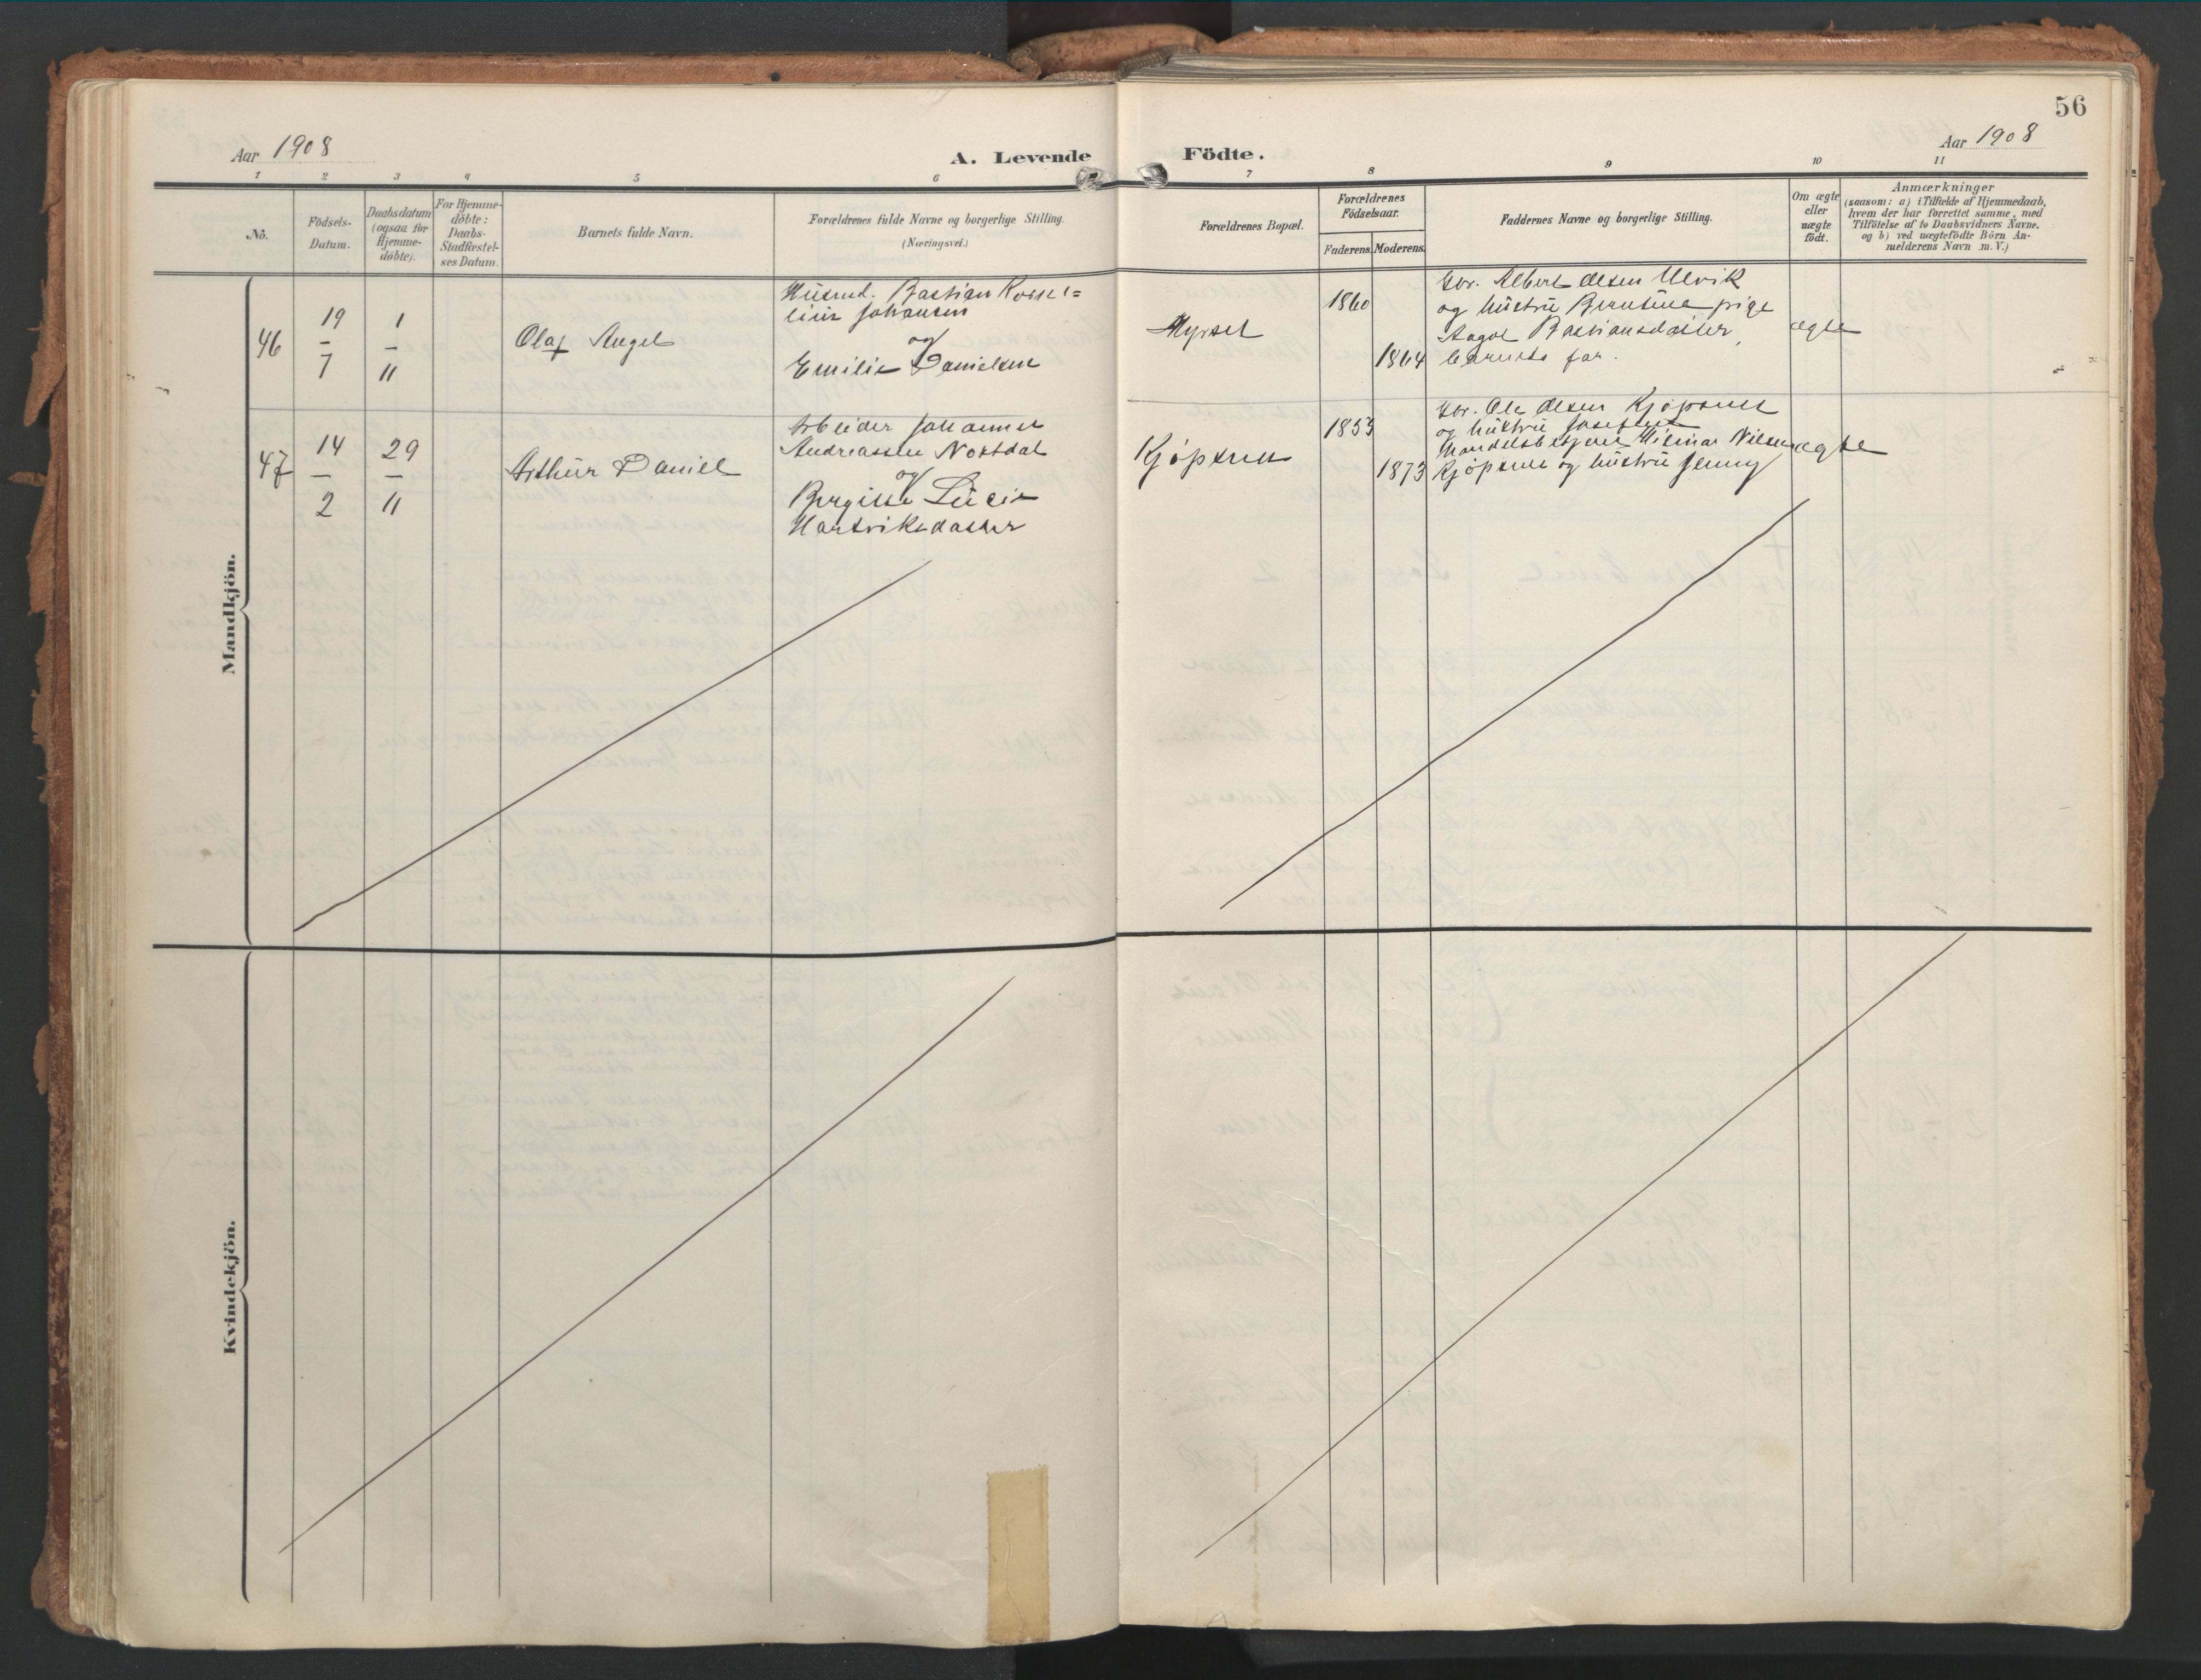 56
Aar 1908
A. Levende Födte.
Aar 1908
1 2 3 4 5 6 7 8 9 10 11
No.
Födsels-
Datum.
Daabsdatum
(ogsaa for
Hjemme-
døbte).
For Hjemme-
døbte:
Daabs-
Stadfæstel-
ses Datum.
Barnets fulde Navn.
Forældrenes fulde Navne og borgerlige Stilling.
(Næringsvei.)
Forældrenes Bopæl.
Forældrenes
Födselsaar.
Faderens.
Moderens.
Faddernes Navne og borgerlige Stilling.
Om ægte
eller
uægte
født.
Anmærkninger
(saasom: a) i Tilfælde af Hjemmedaab,
hvem der har forrettet samme, med
Tilføielse af to Daabsvidners Navne.
og b) ved uægtefödte Börn An-
melderens Navn m. V.)
Mandkjön.
46
19
–
7
1
–
11
Olaf Angel
Husmd. Bastian
Johansen
og
Emilie Danielsen
Myrset
1860
1864
Gbr. Albert Olsen Ulvik
og hustru Berntine pige
Aagot Bastiansdatter,
barnets far.
ægte
47
14
–
2
29
–
11
Arthur Daniel
Arbeider Johannes
Andreassen
og
Bergitte Lucie
Hartviksdatter
Kjøpsnes
1853
1873
Gbr. Ole Olsen Kjøpsnes
og hustru
Hilmar Nilsen
Kjøpsnes og hustru Jenny
ægte
Kvindekjön.